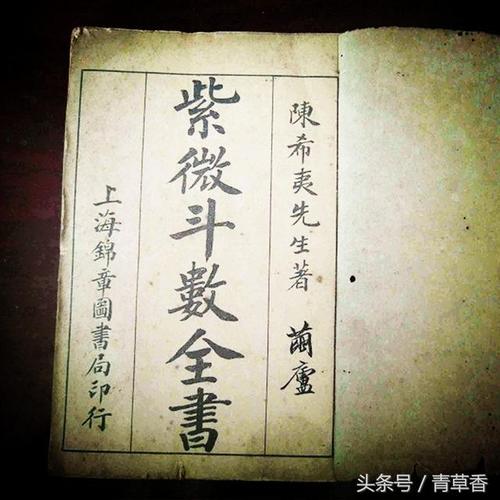 陳希夷先生著 繭廬
紫微斗數全書
上海錦章圖書局印行
头条号 / 青草香